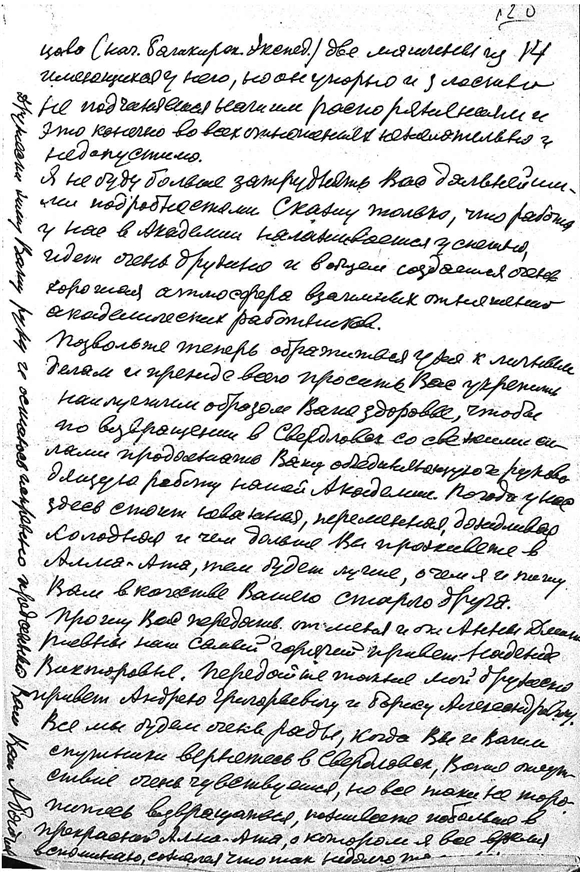 120
14
цова (нач. Башкирск. Экспед.) две машины из
имеющихся у него, но он упорно и
не подчиняется нашим распоряжениям и
это конечно во всех отношениях нежелательно и
недопустимо.
Я не буду больше затруднять Вас дальнейши-
ми подробностями Скажу только, что работа
у нас в Академии налаживается успешно,
идет очень дружно и в общем создается очень
хорошая атмосфера взаимных отношений
академических работников.
Позвольте теперь обратиться уже к личным
делам и прежде всего просить Вас укрепить
наилучшим образом Ваше здоровье, чтобы
по возвращении в Свердловск со свежими си-
лами продолжать Вашу объединяющую и руково
дящую работу нашей Академии. Погода у нас
здесь стоит неважная, переменная, дождливая
холодная и чем дольше Вы проживете в
Алма-Ата, тем будет лучше, о чем я и пишу
Вам в качестве Вашего старого друга.
Прошу Вас передать от меня и от Анны
наш самый горячий привет Надежде
Викторовне. Передайте также мой дружеский
привет Андрею Григорьевичу и Борису Александровичу.
Все мы будем очень рады, когда Вы и Ваши
спутники вернетесь в Свердловск, Ваше отсут-
ствие очень чувствуется, но все таки не торо-
питесь возвращаться, поживите побольше в
прекрасной Алма-Ата, о котором я все время
вспоминаю, сожалея что так недолго
Дружески жму Вашу руку и остаюсь искренно преданный Вам Ваш